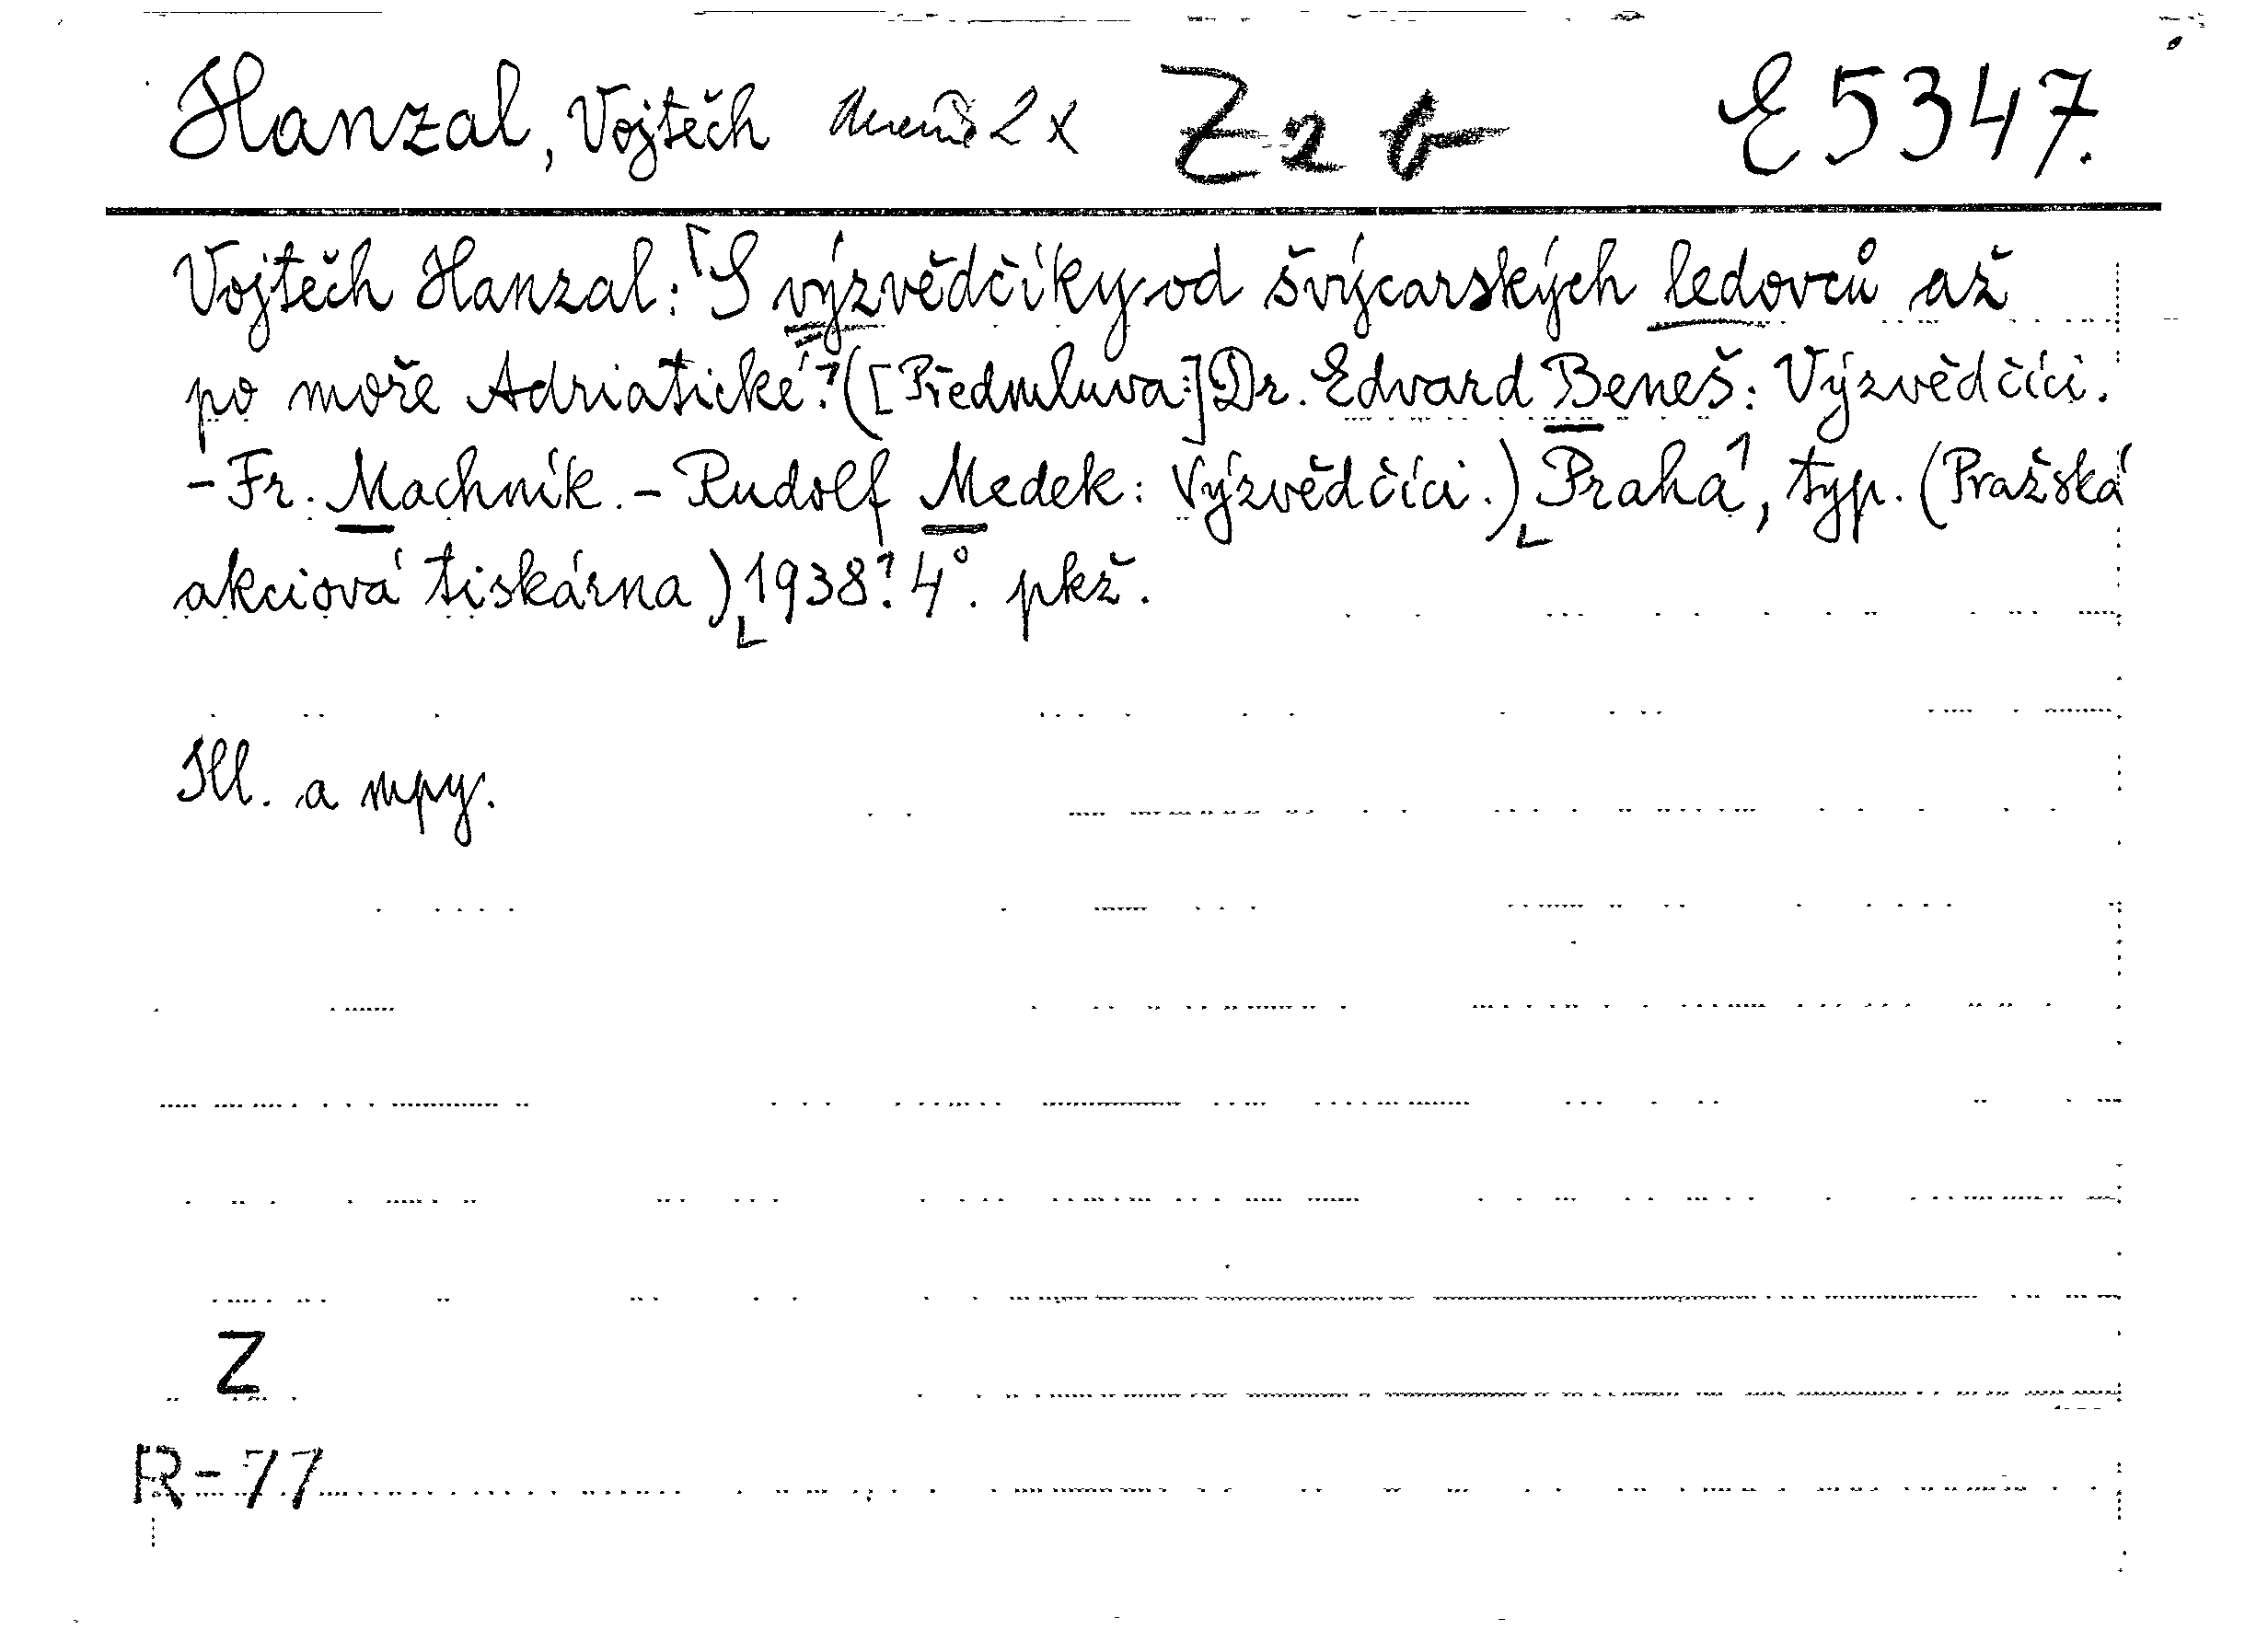 Hanzal, Vojtěch 2x Z2 b E 5347.
Vojtěch Hanzal: S výzvědčíky od švýcarských ledovců až
po moře Adriatické. ([Předmluva:] Dr. Edvard Beneš: Výzvědčíci.
- Fr. Machník. - Rudolf Medek: Výzvědčíci.) Praha, typ. (Pražská
akciová tiskárna) 1938. 4°. pkž.
Ill. a mpy.
Z
R-77